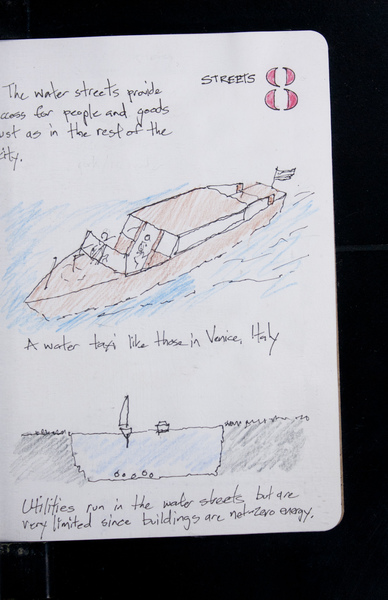 STREETS 8
The water streets provide
ccess for people and goods
ust as in the rest of the
city.
A water taxi like those in Venice, Italy
Utilities run in the water streets but are
very limited since buildings are net-zero energy.